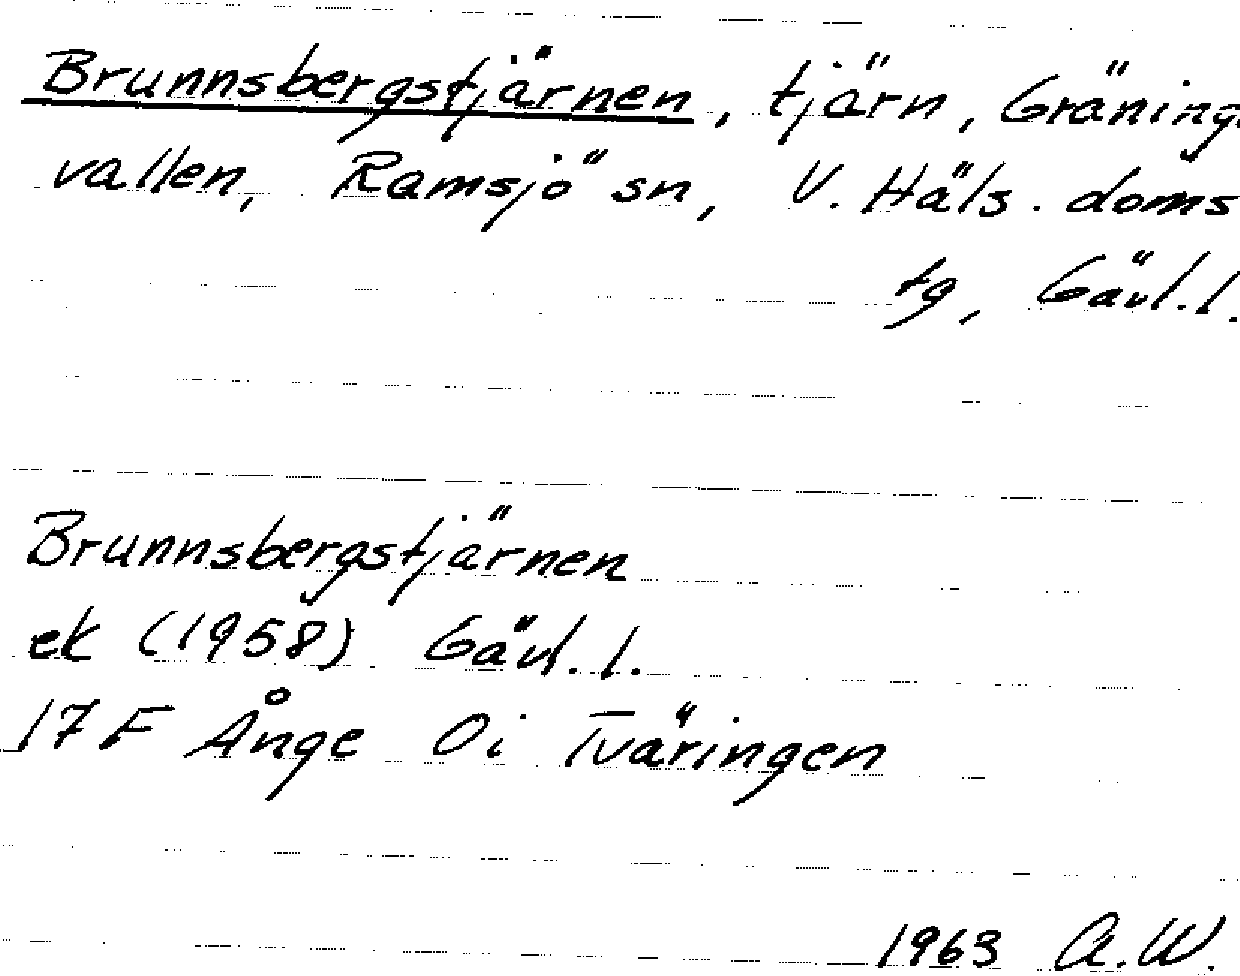 Brunnsbergstjärnen, tjärn, Gränings
vallen, Ramsjö sn, V. Häls. doms
tg, Gävl. l.
Brunnsbergstjärnen
ek (1958) Gävl. l.
17 F Ånge 0 i Tväringen
1963 A.W.